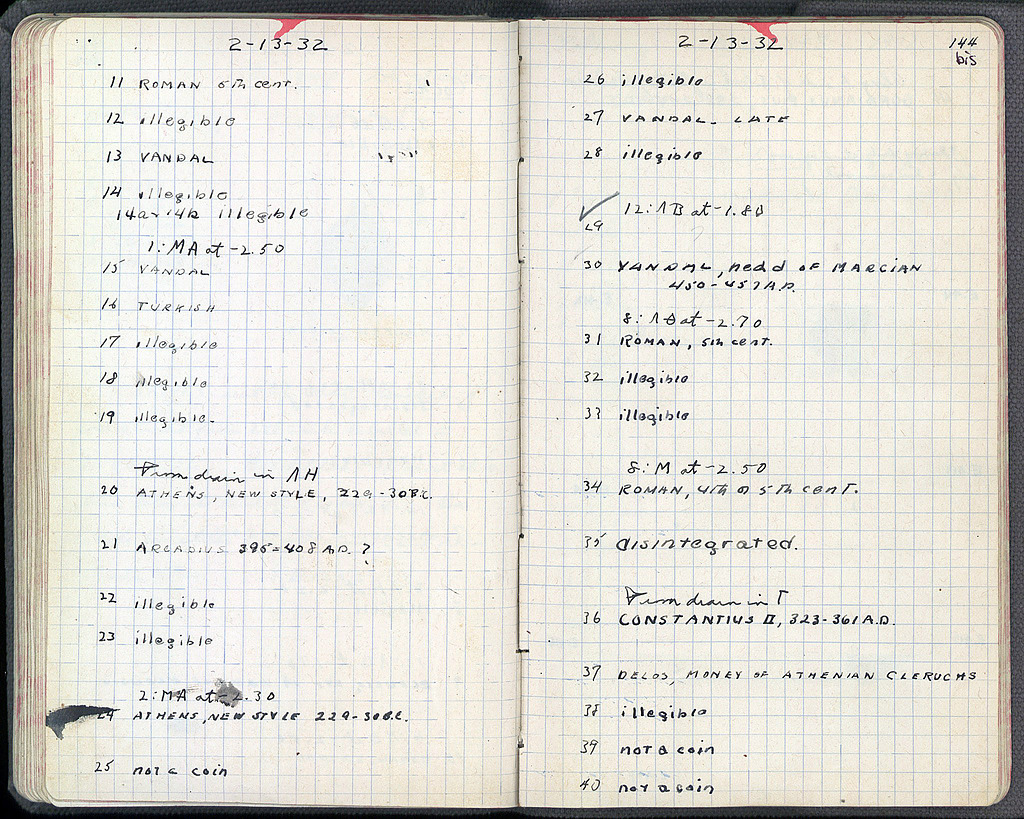 2-13-32
11 ROMAN 5th cent.
12 illegible
13 VANDAL
14 illegible
14a-14b illegible
1:MA at -2.50
15 VANDAL
16 TURKISH
17 illegible
18 illegible
19 illegible.
From drain in ΛH
20 ATHENS, NEW STYLE, 229-30 B.C.
21 ARCADIUS 395-408 A.D. ?
22 illegible
23 illegible
2:MA at -2.30
24 ATHENS, NEW STYLE 229-30 B.C.
25 not a coin
2-13-32
144
bis
26 illegible
27 VANDAL- LATE
28 illegible
12:ΛB at -1.80
29
30 VANDAL, head OF MARCIAN
450-457 A.D.
8:ΛΘ at -2.70
31 ROMAN, 5th cent.
32 illegible
33 illegible
8:M at -2.50
34 ROMAN, 4th or 5th cent.
35 disintegrated.
From drain in Γ
36 CONSTANTIUS II, 323-361 A.D.
37 DELOS, MONEY OF ATHENIAN CLERUCHS
38 illegible
39 not a coin
40 not a coin